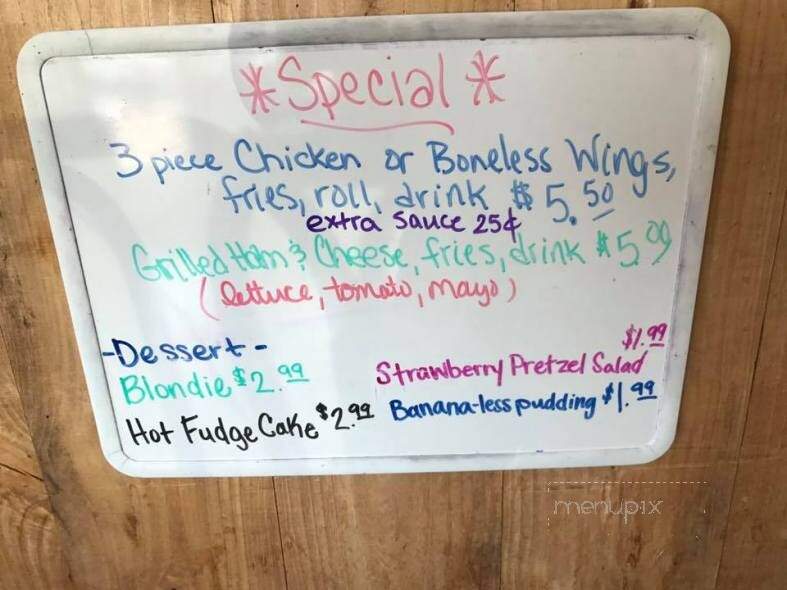 *Special*
3 piece Chicken or Boneless Wings,
fries, roll, drink $5.50
extra sauce 25¢
Grilled Ham & Cheese, fries, drink $5.99
(lettuce, tomato, mayo)
-Dessert-
Blondie $2.99
Hot Fudge Cake $2.99
$1.99
Strawberry Pretzel Salad
Banana-less pudding $1.99
menupix